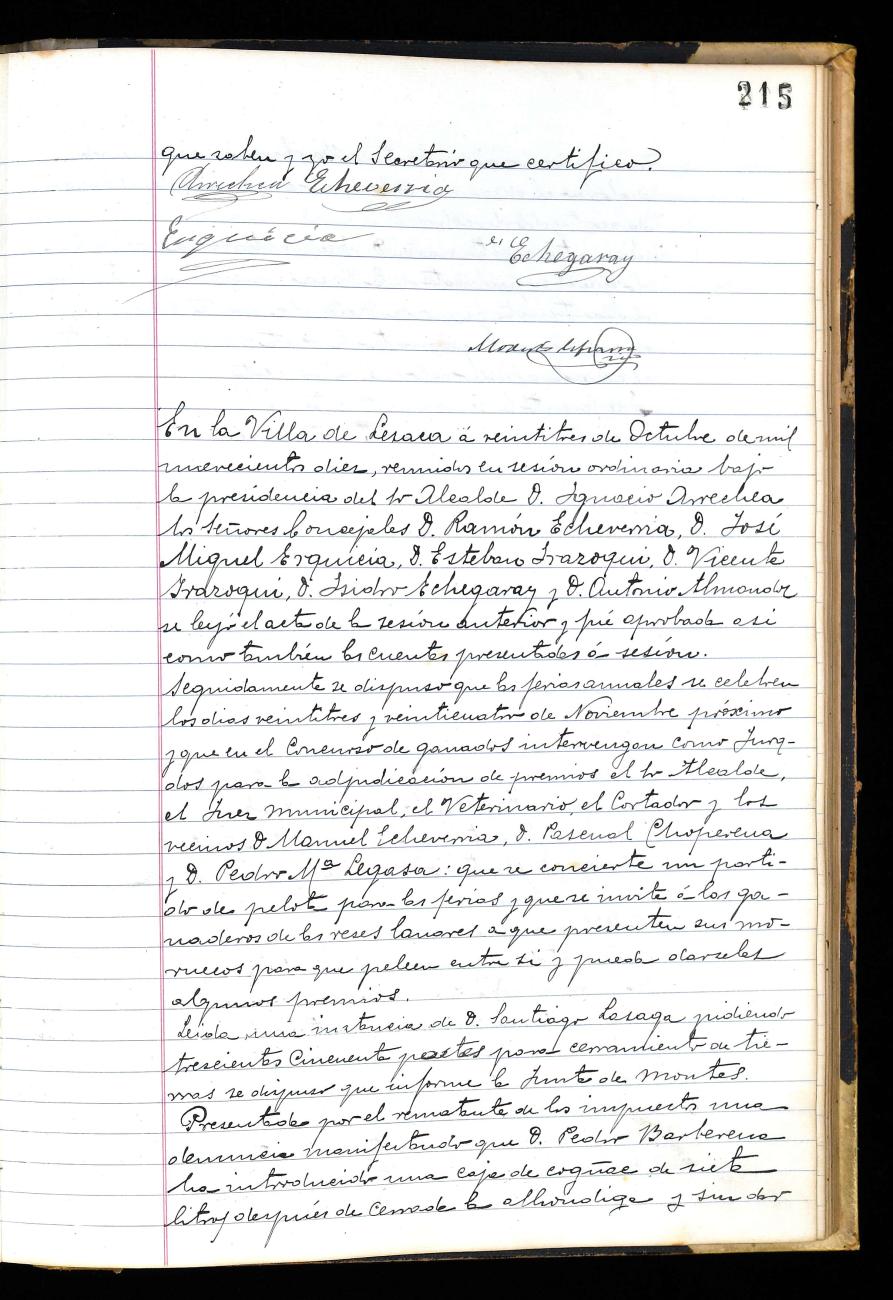 215
que saben y yo el Secretario que certifico.
Arrechea Echeverria
Erquicia
Echegaray
En la Villa de Lesaca á veintitres de Octubre de mil
novecientos diez, reunidos en sesión ordinaria bajo
la presidencia del Sr Alcalde D. Ignacio Arrechea
los Señores Concejales D. Ramón Echeverria, D. José
Miguel Erquicia, D. Esteban Irazoqui, D. Vicente
Irazoqui, D. Isidro Echegaray y D. Antonio Almandoz
se leyó el acta de la sesión anterior y fué aprobada asi
como también las cuentas presentadas á sesión.
Seguidamente se dispuso que las ferias anuales se celebren
los dias veintitres y veinticuatro de Noviembre próximo
y que en el Concurso de ganados intervengan como Jura-
dos para la adjudicación de premios el Sr Alcalde,
el Juez municipal, el Veterinario, el Cortador y los
vecinos D Manuel Echeverria, D. Pascual Choperena
y D. Pedro Mª Legasa: que se concierte un parti-
do de pelota para las ferias y que se invite á los ga-
naderos de las reses lanares a que presenten sus mo-
ruecos para que peleen entre si y pueda darseles
algunos premios.
Leida una instancia de D. Santiago Lasaga pidiendo
trescientos cincuenta postes para cerramiento de tie-
rras se dispuso que informe la Junta de montes.
Presentada por el rematante de los impuestos una
denuncia manifestando que D. Pedro Barberena
ha introducido una caja de cogñac de siete
litros después de cerrada la alhondiga y sin dar